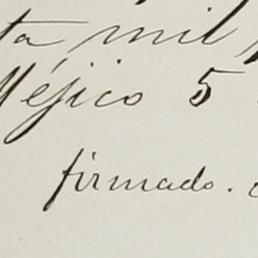 ta, mil
Méjico 5
firmado.